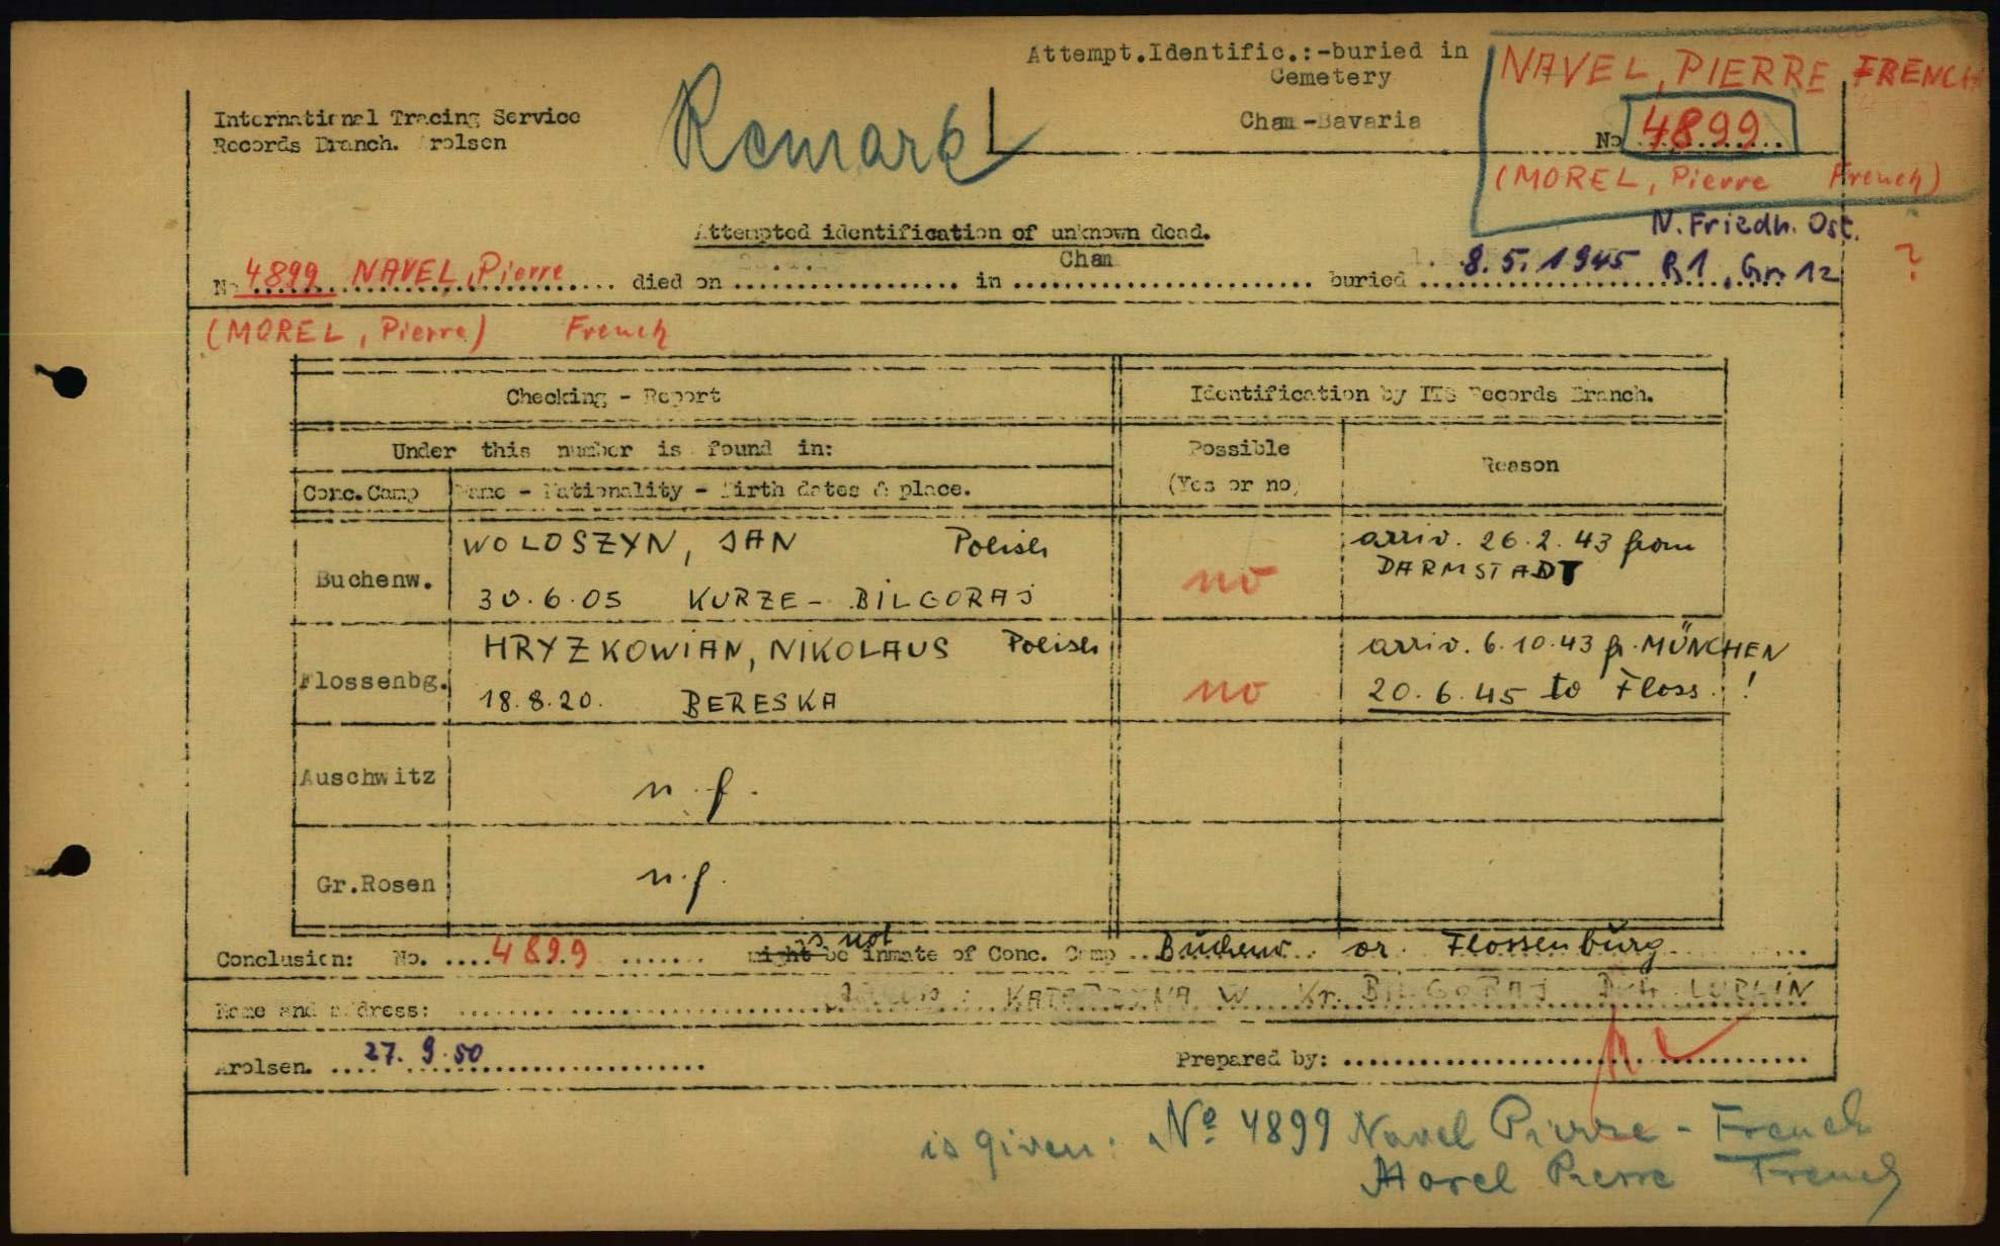 Attempt.Identific.:-buried in
Cemetery
Cham-Bavaria
NAVEL, PIERRE FRENCH
No 4899
(MOREL, Pierre French)
International Tracing Service
Records Branch. Arolsen
Remark
N. Friedh. Ost.
Attempted identification of unknown dead.
No 4899 NAVEL, Pierre died on ........ in Cham buried 8.5.1945 R1, Gr. 12 ?
(MOREL, Pierre) French
Checking - Report
Identification by ITS Records Branch.
Under this number is found in:
Possible
(Yes or no)
Reason
Conc.Camp
Name - Nationality - Birth dates & place.
Buchenw.
WOLOSZYN, JAN Polish
30.6.05 KURZE - BILGORAJ
no
arriv. 26.2.43 from
DARMSTADT
Flossenbg.
HRYZKOWIAN, NIKOLAUS Polish
18.8.20. BERESKA
no
arriv. 6.10.43 fr. MÜNCHEN
20.6.45 to Floss. !
Auschwitz
n.f.
Gr.Rosen
n.f.
is not
Conclusion: No. ....4899 ....... might be inmate of Conc. Camp ..Buchenw. or Flossenburg
Name and address: KATARZYNA W. Kr. BILGORAJ LUBLIN
Arolsen. ....27.9.50........
Prepared by: ........
is given: Nº 4899 Navel Pierre - French
Morel Pierre French